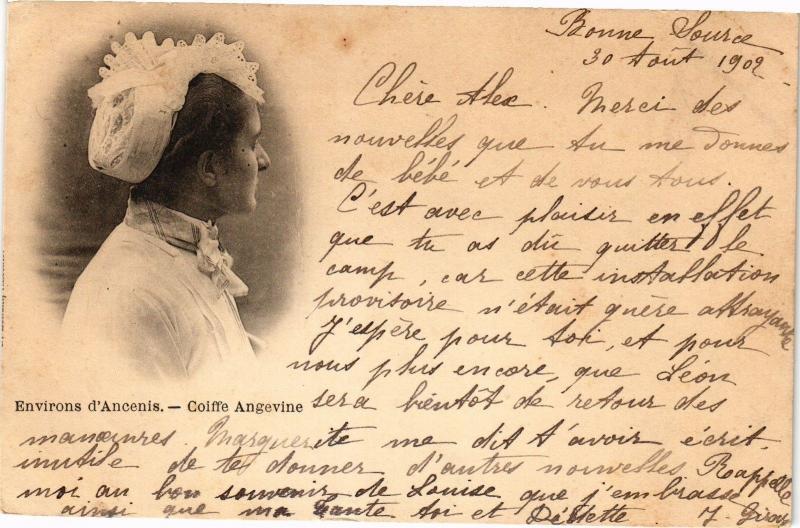 Bonne Source
30 Août 1902
Chère Alex. Merci des
nouvelles que tu me donnes
de bébé et de vous tous.
C'est avec plaisir en effet
que tu as dû quitter le
camp, car cette installation
provisoire n'était guère attrayante
J'espère pour toi, et pour
nous plus encore, que Léon
sera bientôt de retour des
manœuvres. Marguerite me dit t'avoir écrit,
inutile de te donner d'autres nouvelles Rappelle
moi au bon souvenir de Louise que j'embrasse
ainsi que ma tante toi et
Environs d'Ancenis. — Coiffe Angevine